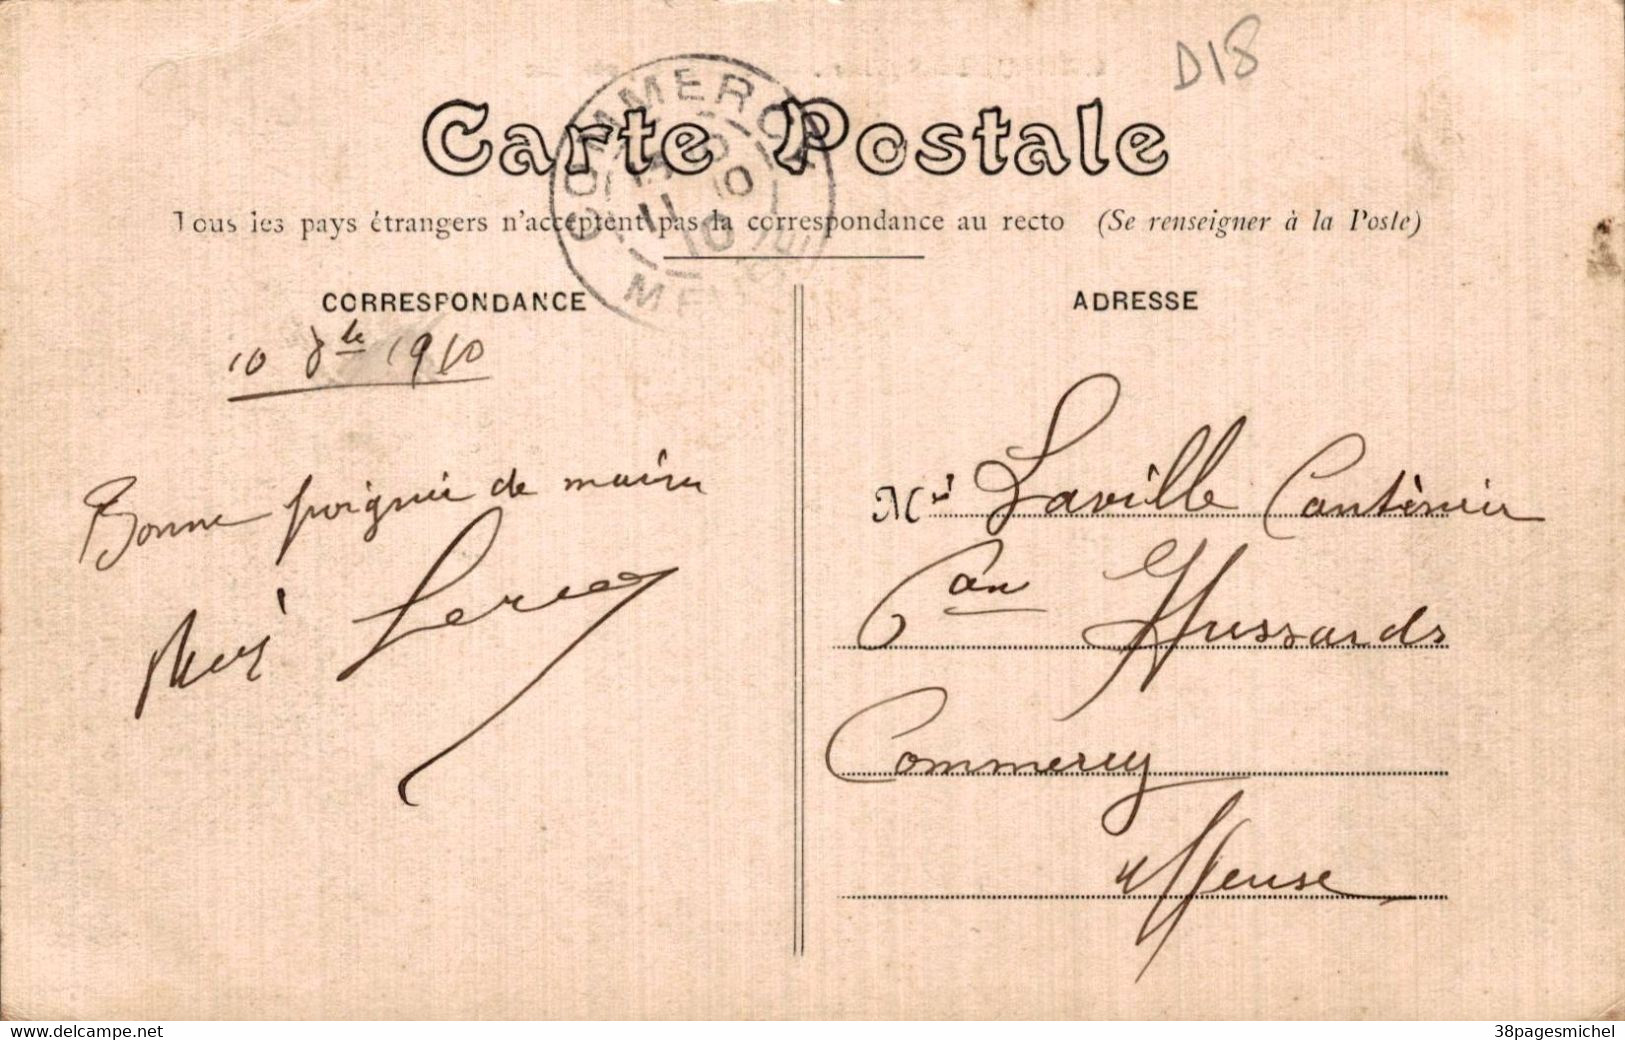 D18
COMMERCY
11 10
10
MEUSE
Carte Postale
Tous les pays étrangers n'acceptent pas la correspondance au recto (Se renseigner à la Poste)
CORRESPONDANCE
10 8bre 1910
Bonne poignée de mains
ADRESSE
Mr Laville Cantinier
Can Hussards
Commercy
Meuse
delcampe.net
38pagesmichel